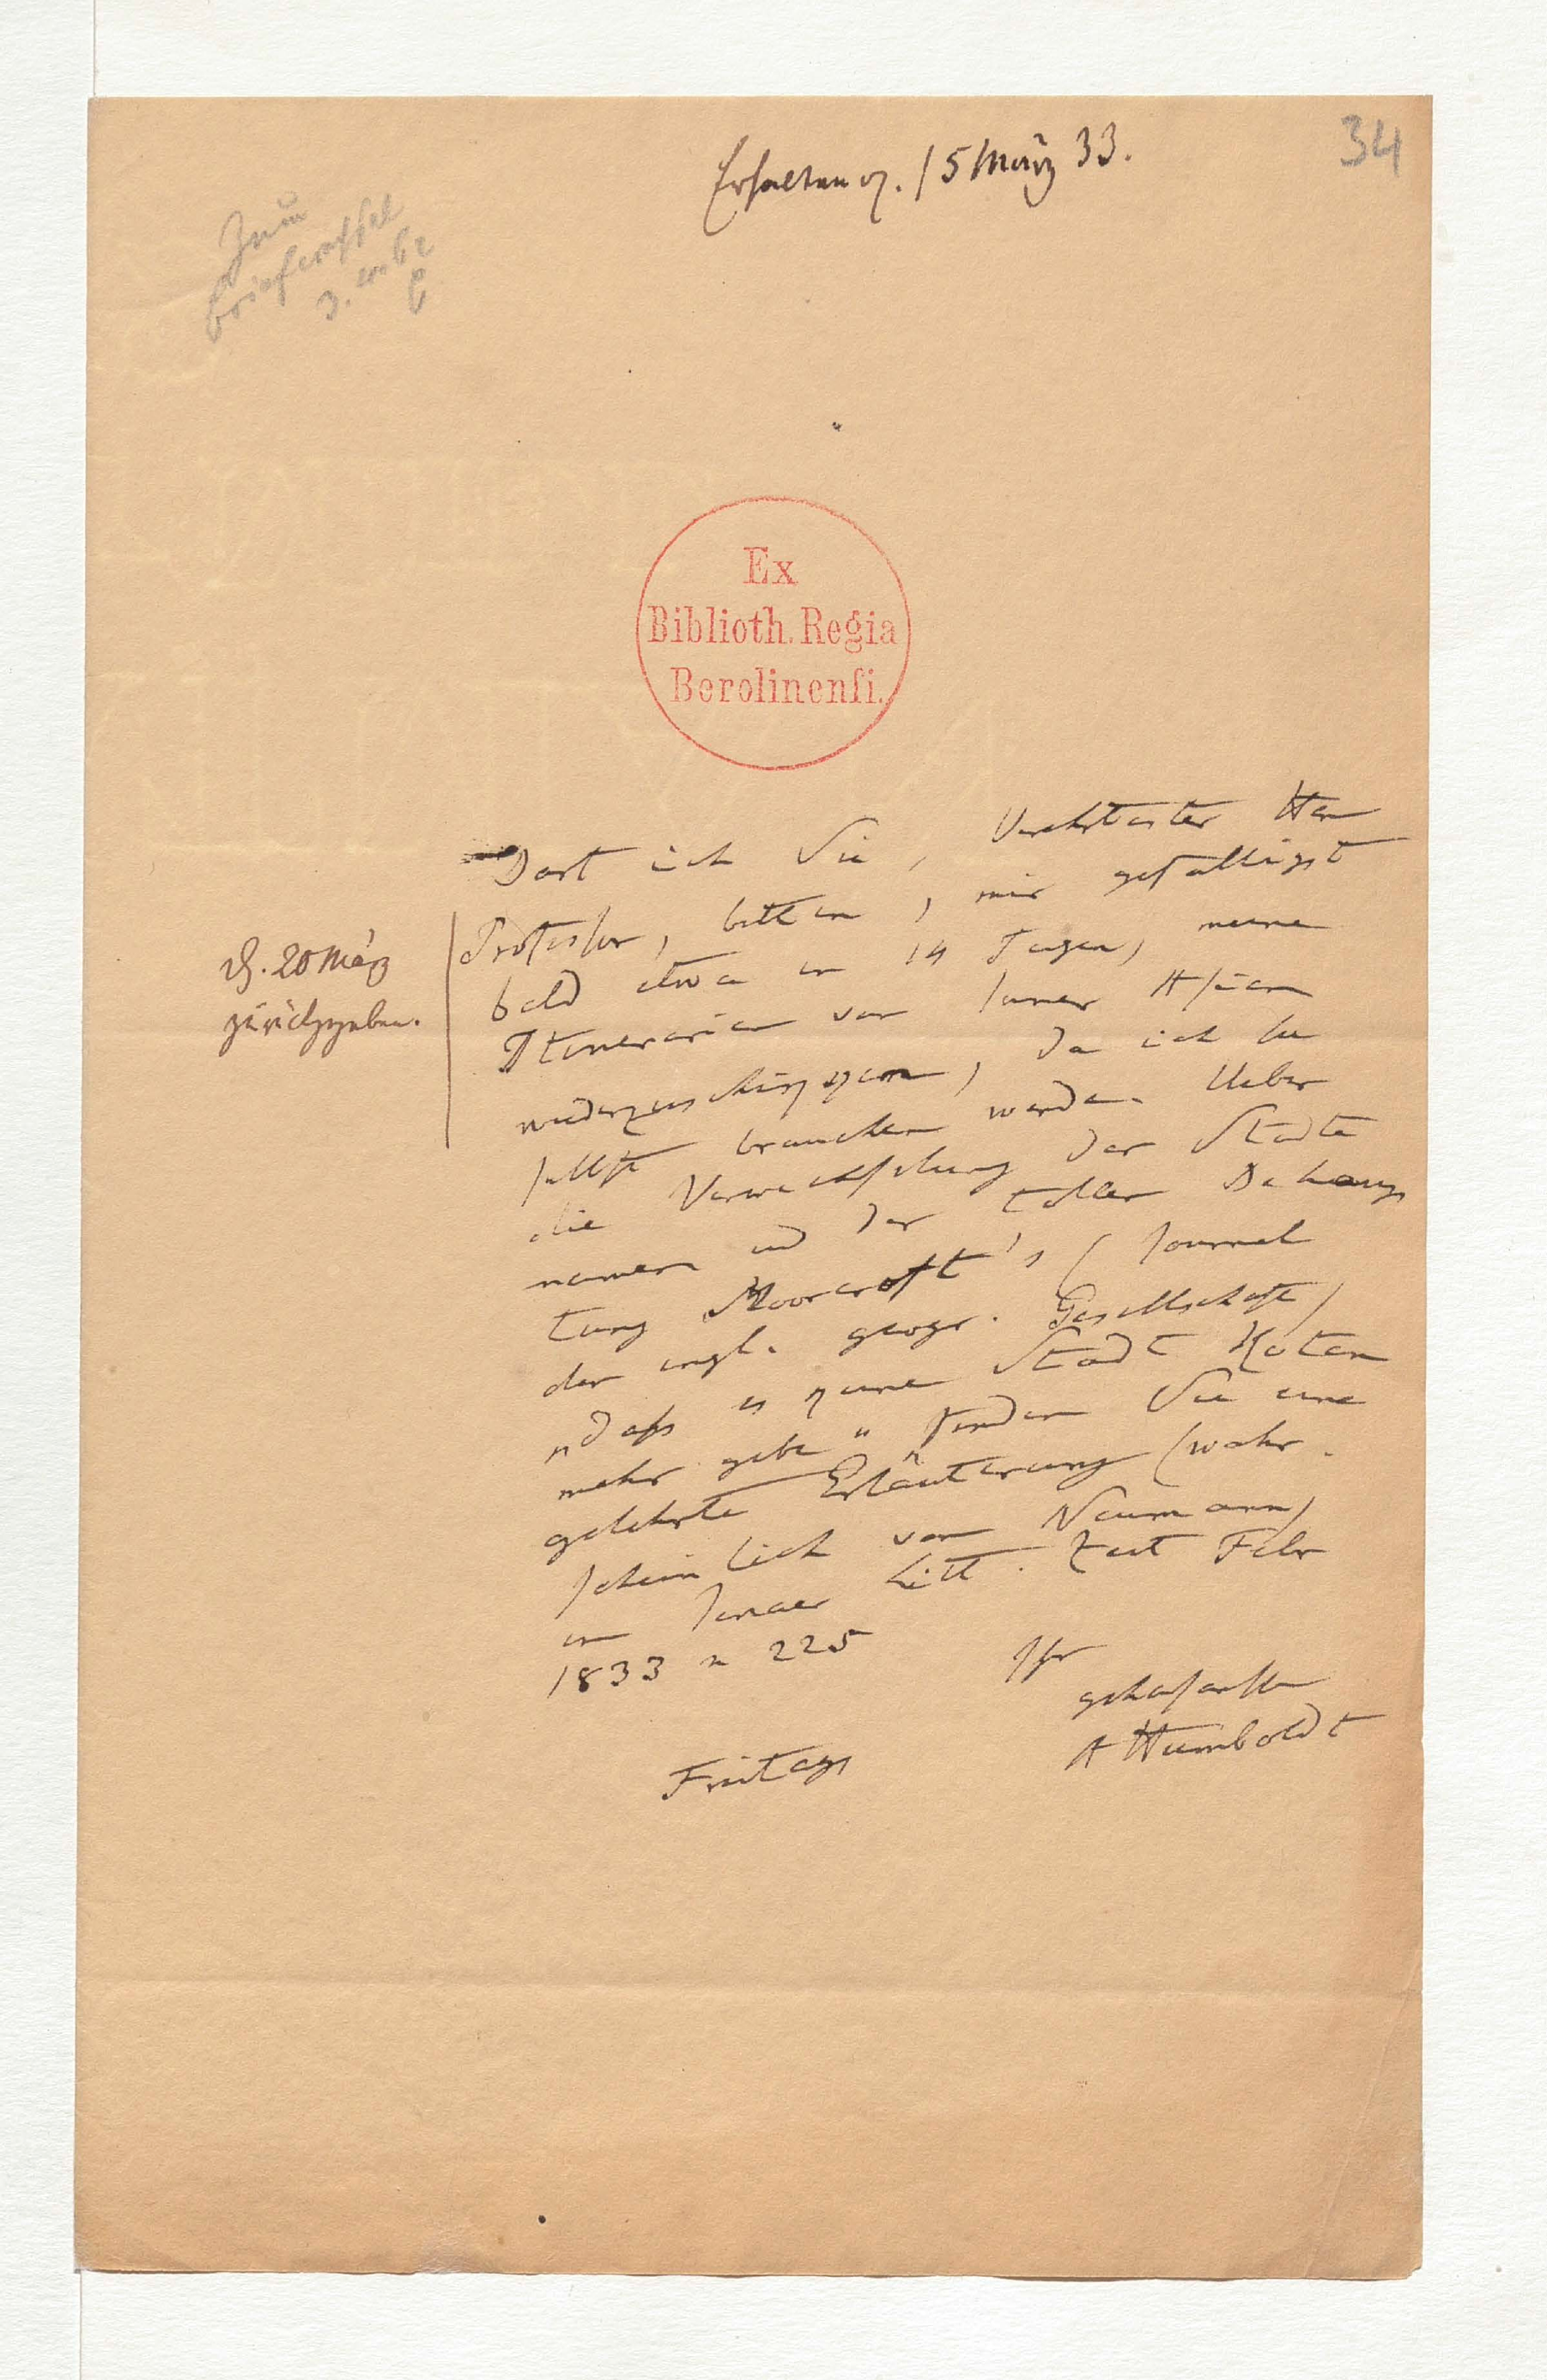 34
Erhalten d. 15 März 33.
Zum
Ex
Biblioth. Regia
Berolinensi.
Darf ich Sie, Verehrtester Herr
Professor, bitten, mir gefälligst
bald etwa in 14 Tagen, meine
Itinerarien von Inner Asien
wiederzuschikken, da ich sie
selbst brauchen werde. Ueber
die Verwechslung der Städte
namen und der tollen Behaup
tung Moorcroft's (Journal
der engl. geogr. Gesellschaft)
„daß es keine Stadt Koten
mehr gebe" finden Sie eine
gelehrte Erläuterung (wahr-
scheinlich von Neumann)
in Jenaer Litt. Zeit Febr
1833 n 225
Ihr
gehorsamster
A Humboldt
Freitags
d. 20 März
zurückgegeben.